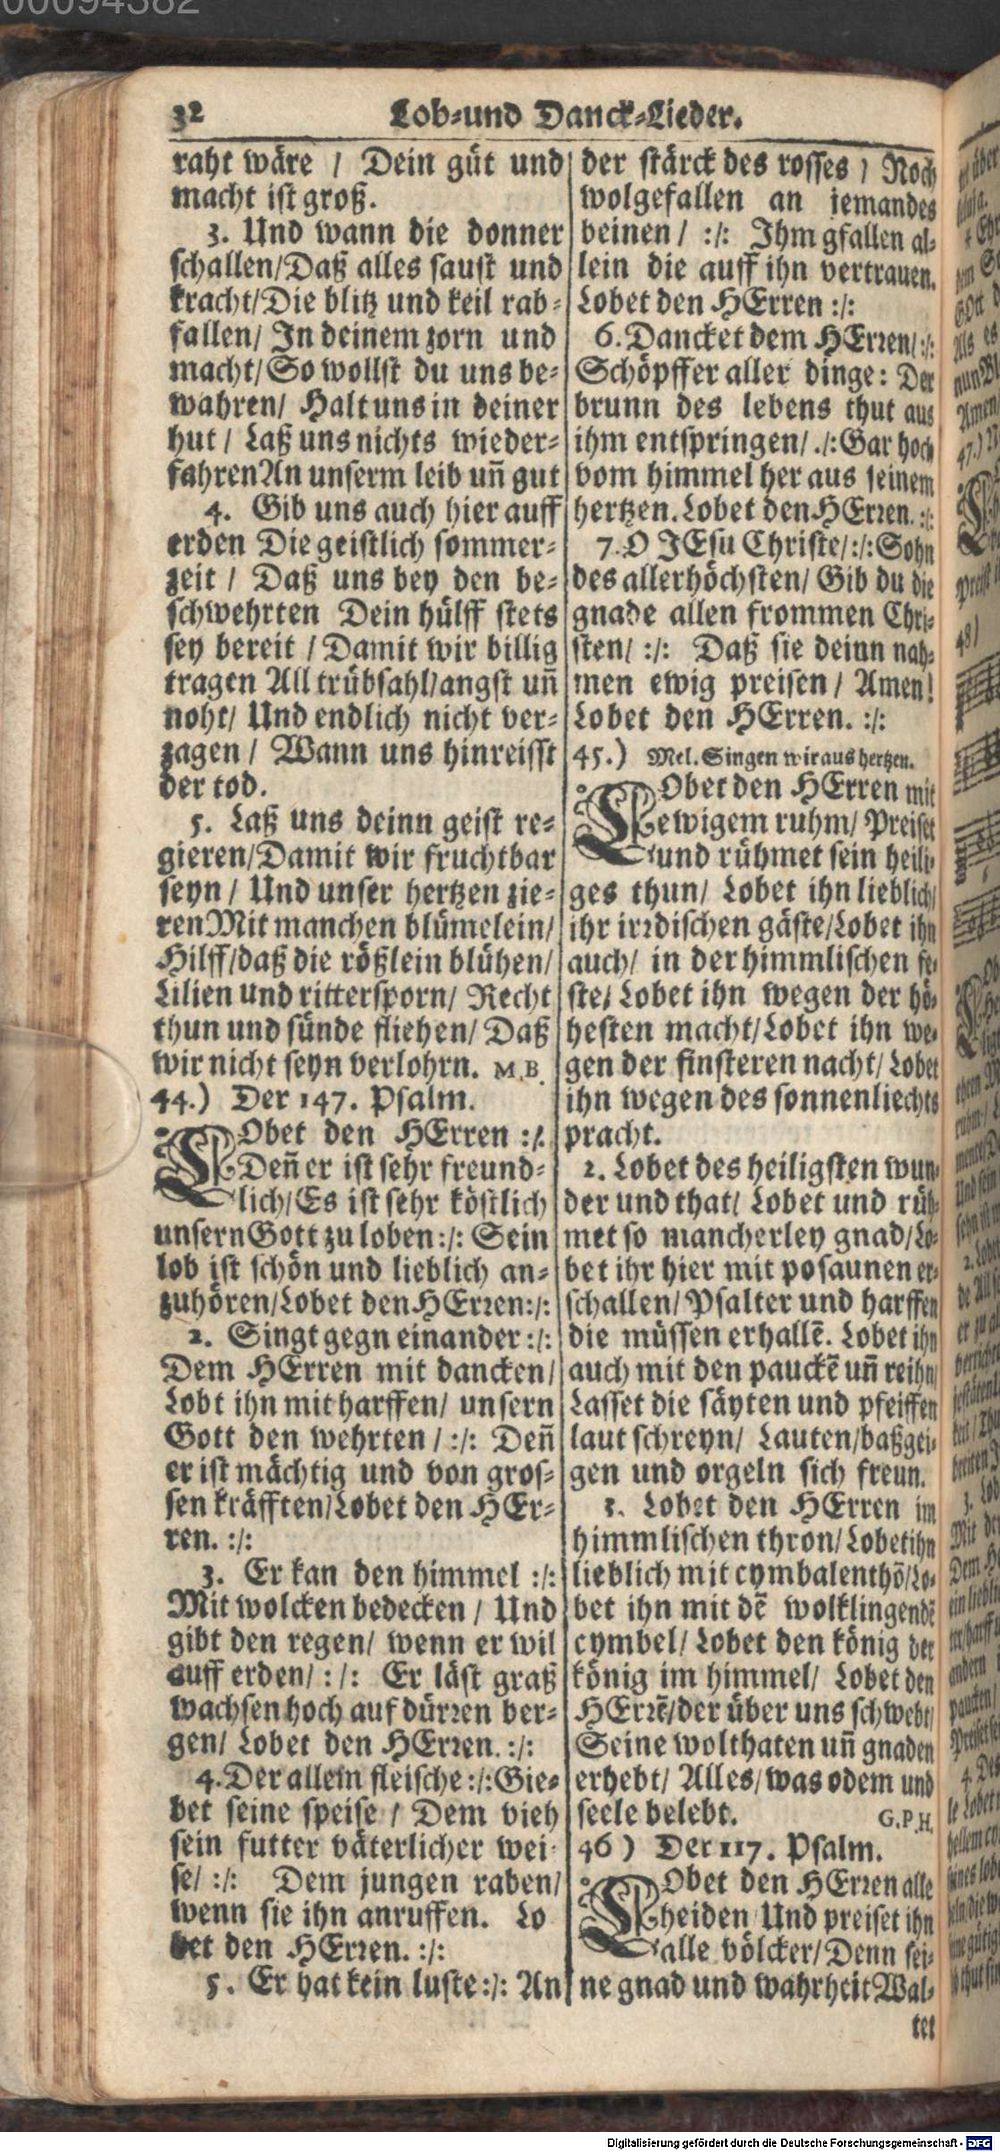 00094382
32 Lob-und Danck-Lieder.
raht wäre / Dein güt und
macht ist groß.
3. Und wann die donner
schallen/Daß alles saust und
kracht/Die blitz und keil rab-
fallen/ In deinem zorn und
macht/So wollst du uns be-
wahren/ Halt uns in deiner
hut / Laß uns nichts wieder-
fahren An unserm leib uñ gut
4. Gib uns auch hier auff
erden Die geistlich sommer-
zeit / Daß uns bey den be-
schwehrten Dein hülff stets
sey bereit / Damit wir billig
tragen All trübsahl/angst uñ
noht/ Und endlich nicht ver-
zagen / Wann uns hinreisst
der tod.
5. Laß uns deinn geist re-
gieren/Damit wir fruchtbar
seyn / Und unser hertzen zie-
ren Mit manchen blümelein/
Hilff/daß die rößlein blühen/
Lilien und rittersporn/ Recht
thun und sünde fliehen/ Daß
wir nicht seyn verlohrn. M.B.
44.) Der 147. Psalm.
LObet den HErren :/:
Deñ er ist sehr freund-
lich/Es ist sehr köstlich
unsern Gott zu loben:/: Sein
lob ist schön und lieblich an-
zuhören/Lobet den HErren:/:
2. Singt gegn einander :/:
Dem HErren mit dancken/
Lobt ihn mit harffen/ unsern
Gott den wehrten / :/: Deñ
er ist mächtig und von gros-
sen kräfften/Lobet den HEr-
ren. :/:
3. Er kan den himmel :/:
Mit wolcken bedecken / Und
gibt den regen/ wenn er wil
auff erden/ :/: Er läst graß
wachsen hoch auf dürren ber-
gen/ Lobet den HErren. :/:
4. Der allein fleische :/: Gie-
bet seine speise / Dem vieh
sein futter väterlicher wei-
se/ :/: Dem jungen raben/
wenn sie ihn anruffen. Lo
bet den HErren. :/:
5. Er hat kein luste :/: An
der stärck des rosses / Noch
wolgefallen an jemandes
beinen / :/: Ihm gfallen al-
lein die auff ihn vertrauen.
Lobet den HErren :/:
6. Dancket dem HErren/ :/:
Schöpffer aller dinge: Der
brunn des lebens thut aus
ihm entspringen/ :/: Gar hoch
vom himmel her aus seinem
hertzen. Lobet den HErren. :/:
7. O JEsu Christe/ :/: Sohn
des allerhöchsten/ Gib du die
gnade allen frommen Chri-
sten/ :/: Daß sie deinn nah-
men ewig preisen / Amen!
Lobet den HErren. :/:
45.) Mel. Singen wir aus hertzen.
LObet den HErren mit
ewigem ruhm/ Preiset
und rühmet sein heili-
ges thun/ Lobet ihn lieblich/
ihr irrdischen gäste/Lobet ihn
auch/ in der himmlischen fe-
ste/ Lobet ihn wegen der hö-
hesten macht/Lobet ihn we-
gen der finsteren nacht/ Lobet
ihn wegen des sonnenliechts
pracht.
2. Lobet des heiligsten wun-
der und that/ Lobet und rüh-
met so mancherley gnad/Lo-
bet ihr hier mit posaunen er-
schallen/ Psalter und harffen
die müssen erhallẽ. Lobet ihn
auch mit den pauckẽ uñ reihn/
Lasset die säyten und pfeiffen
laut schreyn/ Lauten/baßgei-
gen und orgeln sich freun.
3. Lobet den HErren im
himmlischen thron/ Lobet ihn
lieblich mit cymbalenthõ/Lo-
bet ihn mit dẽ wolklingendẽ
cymbel/ Lobet den könig der
könig im himmel/ Lobet den
HErrẽ/der über uns schwebt/
Seine wolthaten uñ gnaden
erhebt/ Alles/was odem und
seele belebt. G.P.H.
46) Der 117. Psalm.
LObet den HErren alle
heiden Und preiset ihn
alle völcker/ Denn sei-
ne gnad und wahrheit Wal-
tet
Digitalisierung gefördert durch die Deutsche Forschungsgemeinschaft - DFG